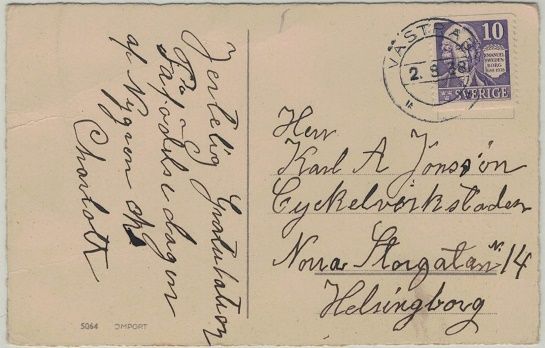 Jertelig Gratulation
På
Fööelse dagen
af Nygren og
Charlott
VÄSTRA
2.9.38
10
EMANUEL
SWEDEN
BORG
SVERIGE
Herr
Karl A Jönssön
Cyckelverkstaden
Norra Storgatan N. 14
Helsingborg
5064 IMPORT